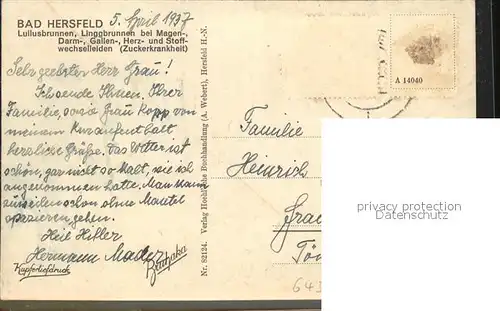 BAD HERSFELD 5. April 1937
Lullusbrunnen, Linggbrunnen bei Magen-,
Darm-, Gallen-, Herz- und Stoff-
wechselleiden (Zuckerkrankheit)
Sehr geehrter Herr Grau!
Ich sende Ihnen, Ihrer
Familie, sowie Frau Kopp von
meinem Kuraufenthalt
herzliche Grüße. Das Wetter ist
schön, gar nicht so kalt, wie ich
angenommen hatte. Man kann
zuweilen schon ohne Mantel
spazieren gehen.
Heil Hitler
Hermann Mader
Kupfertiefdruck
Nr. 82124. Verlag Hoehl'sche Buchhandlung (A. Webert), Hersfeld H.-N.
A 14040
Familie
Heinrich
privacy protection
Datenschutz